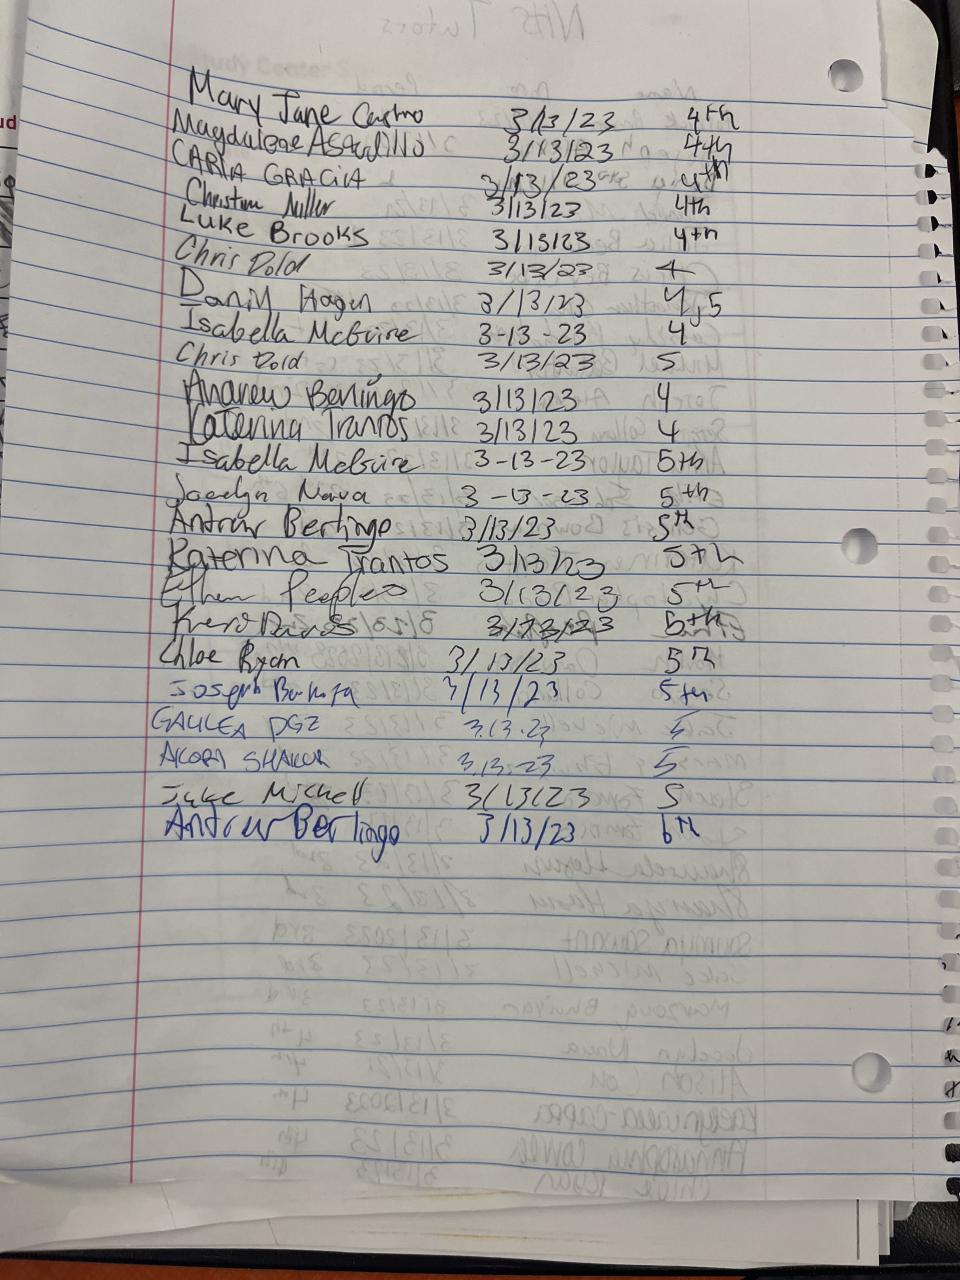 Mary Jane Castro 3/13/23 4th
Magdalene 3/13/23 4th
CARLA GRACIA 3/13/23 4th
Christian Miller 3/13/23 4th
Luke Brooks 3/13/23 4th
Chris Dold 3/13/23 4
Daniil Hagen 3/13/23 4,5
Isabella McGuire 3-13-23 4
Chris Dold 3/13/23 5
Andrew Berlingo 3/13/23 4
Katerina Trantos 3/13/23 4
Isabella McGuire 3-13-23 5th
Jocelyn Nava 3-13-23 5th
Andrew Berlingo 3/13/23 5th
Katerina Trantos 3/13/23 5th
Ethan Peeples 3/13/23 5th
3/13/23 5th
Chloe Ryan 3/13/23 5th
Joseph 3/13/23 5th
GALILEA DGZ 3.13.23 5
AKORI SHAKUR 3.13.23 5
Jake Michell 3/13/23 5
Andrew Berlingo 3/13/23 6th